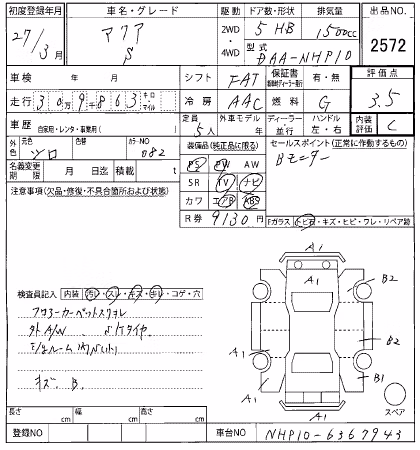 初度登録年月 車名・グレード 駆動 ドア数・形状 排気量 出品NO.
27/3月 アクア S 2WD ・ 4WD 5 HB 1500cc 2572
型式 DAA-NHP10
車検 年 月 シフト FAT 保証書 有・無 評価点
走行 309,863 キロ マイル 冷房 AAC 燃料 G 3.5
車歴 自家用・レンタ・事業用( ) 定員 5人 外車モデル 年 ディーラー・並行 ハンドル 左・右 内装評価 C
外色 元色 シロ 色替 カラーNO 082 装備品(純正品に限る) セールスポイント(正常に作動するもの)
名義変更期限 月 日迄 積載 t PS PW AW Bモニター
注意事項(欠品・修復・不具合箇所および状態) SR TV ナビ
カワ エアB ABS
R券 9130 円 Fガラス トビ石・キズ・ヒビ・ワレ・リペア跡
A1
A1 B2
検査員記入 内装 汚レ・スレ・キズ・キレ・コゲ・穴
フロアーカーペットスリキレ
外A/W
B2
A1 A1 B1
キズ、B.
A1
スペア
長さ cm 幅 cm 高さ cm
登録NO 車台NO NHP10-6367943